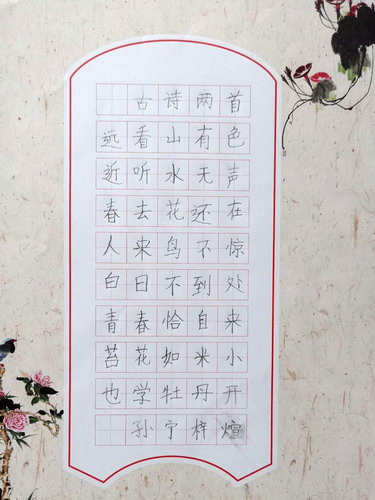 古诗两首
远看山有色
近听水无声
春去花还在
人来鸟不惊
白日不到处
青春恰自来
苔花如米小
也学牡丹开
孙宁梓煊